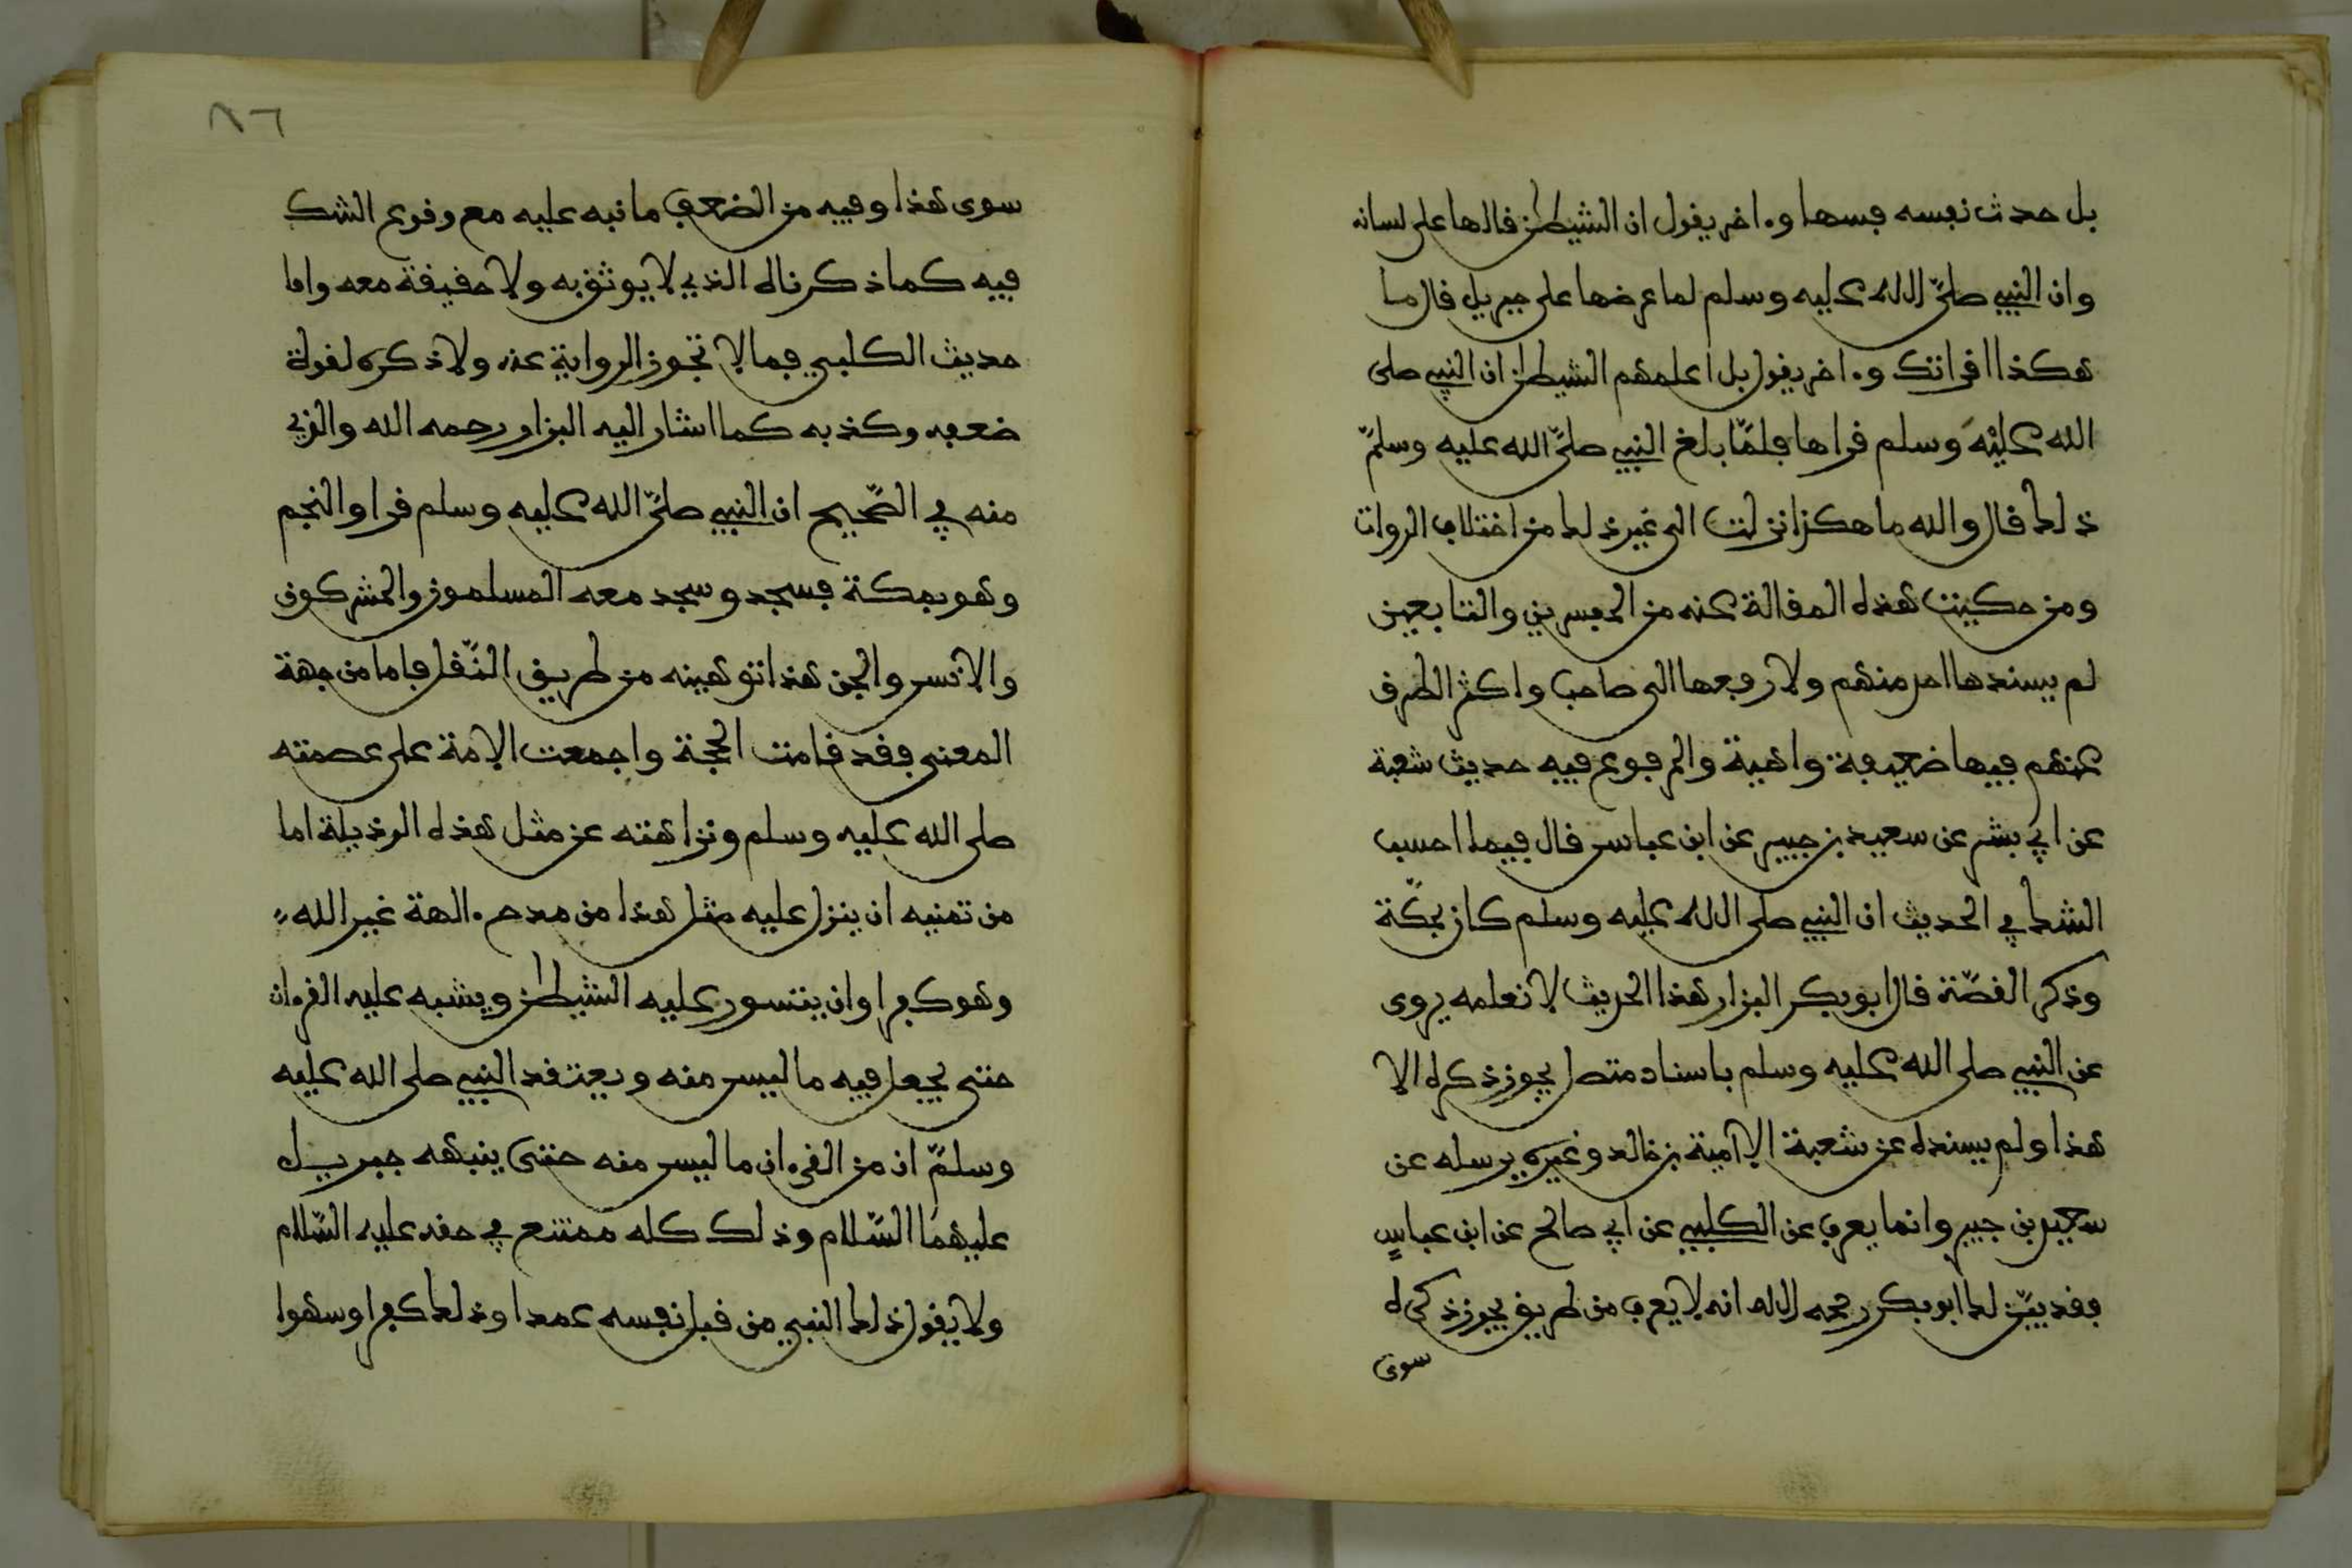 بل حدث نفسه فسها وءاخر يقول ان الشيطن قالها على لسانه
وان النبي صلى الله عليه وسلم لما عرضها على جبريل قال ما
هكذا اقراتك وءاخر يقول بل اعلمهم الشيطن ان النبي صلى
الله عليه وسلم قراها فلما بلغ النبي صلى الله عليه وسلم
ذلك قال والله ما هكذا نزلت الى غير ذلك من اختلاف الروات
ومن حكيت هذه المقالة عنه من المفسرين والتابعين
لم يسندها احد منهم ولا رفعها الى صاحب واكثر الطرق
عنهم فيها ضعيفة واهية والمرفوع فيه حديث شعبة
عن ابي بشر عن سعيد بن جبير عن ابن عباس قال فيما احسب
الشك في الحديث ان النبي صلى الله عليه وسلم كان بمكة
وذكر القصة قال ابو بكر البزار هذا الحديث لا نعلمه يروى
عن النبي صلى الله عليه وسلم باسناد متصل يجوز ذكره الا
هذا ولم يسنده عن شعبة الا امية بن خالد وغيره يرسله عن
سعيد بن جبير وانما يعرف عن الكلبي عن ابي صالح عن ابن عباس
فقد بين لك ابو بكر رحمه الله انه لا يعرف من طريق يجوز ذكره
سوى
٨٦
سوى هذا وفيه من الضعف ما نبه عليه مع وقوع الشك
فيه كما ذكرناه الذي لا يوثق به ولا حقيقة معه واما
حديث الكلبي فما لا تجوز الرواية عنه ولا ذكره لقوة
ضعفه وكذبه كما اشار اليه البزار رحمه الله والذي
منه في الصحيح ان النبي صلى الله عليه وسلم قرا والنجم
وهو بمكة فسجد وسجد معه المسلمون والمشركون
والانس والجن هذا توهينه من طريق النقل فاما من جهة
المعنى فقد قامت الحجة واجمعت الامة على عصمته
صلى الله عليه وسلم ونزاهته عن مثل هذه الرذيلة اما
من تمنيه ان ينزل عليه مثل هذا من مدح ءالهة غير الله
وهو كفر او ان يتسور عليه الشيطن ويشبه عليه القرءان
حتى يجعل فيه ما ليس منه ويعتقد النبي صلى الله عليه
وسلم ان من القرءان ما ليس منه حتى ينبهه جبريل
عليهما السلام وذلك كله ممتنع في حقه عليه السلام
ولا يقول ذلك النبي من قبل نفسه عمدا وذلك كفر او سهوا